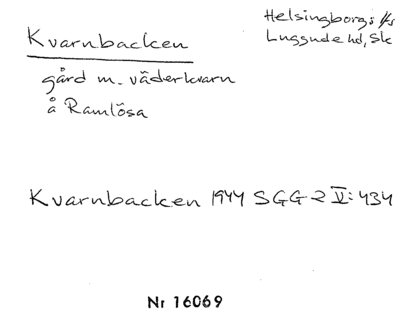 Kvarnbacken
Helsingborgs lfs
Luggude hd, Sk
gård m. väderkvarn
å Ramlösa
Kvarnbacken 1944 SGG 2 V: 434
Nr 16069